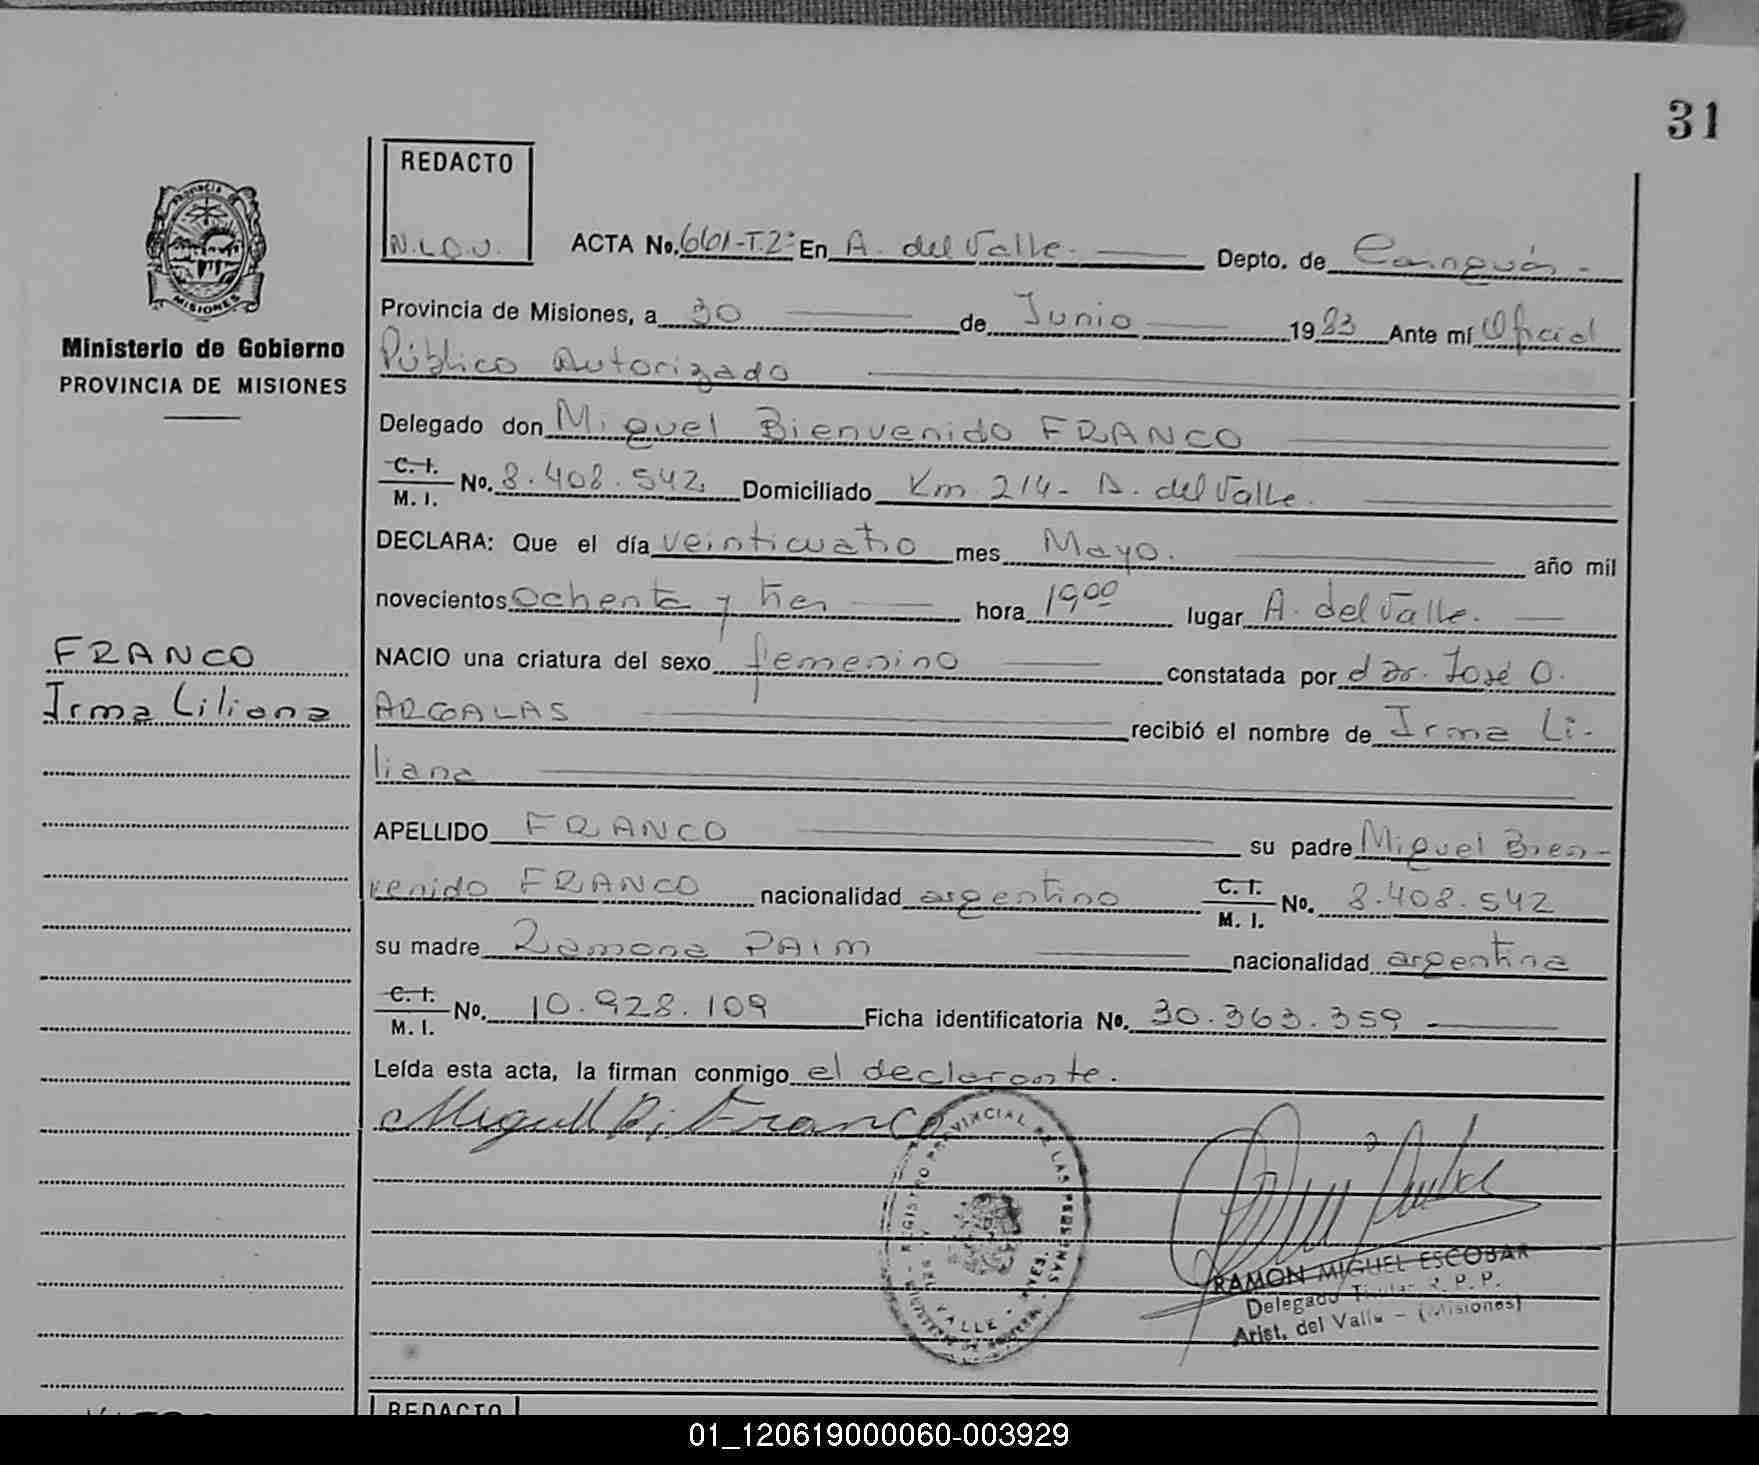 31
REDACTO
N.L.O.V.
ACTA No. 661-T.2º En A. del Valle. Depto. de Cainguás -
Provincia de Misiones, a 30 de Junio 1983 Ante mí Oficial
Público Autorizado
Delegado don Miguel Bienvenido FRANCO
C. I. M. I. No. 8.408.542. Domiciliado Km. 214- A. del Valle.
DECLARA: Que el día veinticuatro mes Mayo. año mil
novecientos ochenta y tres hora 19⁰⁰ lugar A. del Valle.
NACIO una criatura del sexo femenino constatada por el Dr. José O.
ARGALAS recibió el nombre de Irma Li-
liana
APELLIDO FRANCO su padre Miguel Bien-
venido FRANCO nacionalidad argentino C. I. M. I. No. 8.408.542
su madre Ramona PAIM nacionalidad argentina
C. I. M. I. No. 10.928.109 Ficha identificatoria No. 30.363.359
Leída esta acta, la firman conmigo el declarante.
Miguel B. Franco
PROVINCIA MISIONES
Ministerio de Gobierno
PROVINCIA DE MISIONES
FRANCO
Irma Liliana
REGISTRO PROVINCIAL DE LAS PERSONAS
DEL VALLE
RAMON MIGUEL ESCOBAR
Delegado Titular R. P. P.
Arist. del Valle - (Misiones)
REDACTO
01_120619000060-003929